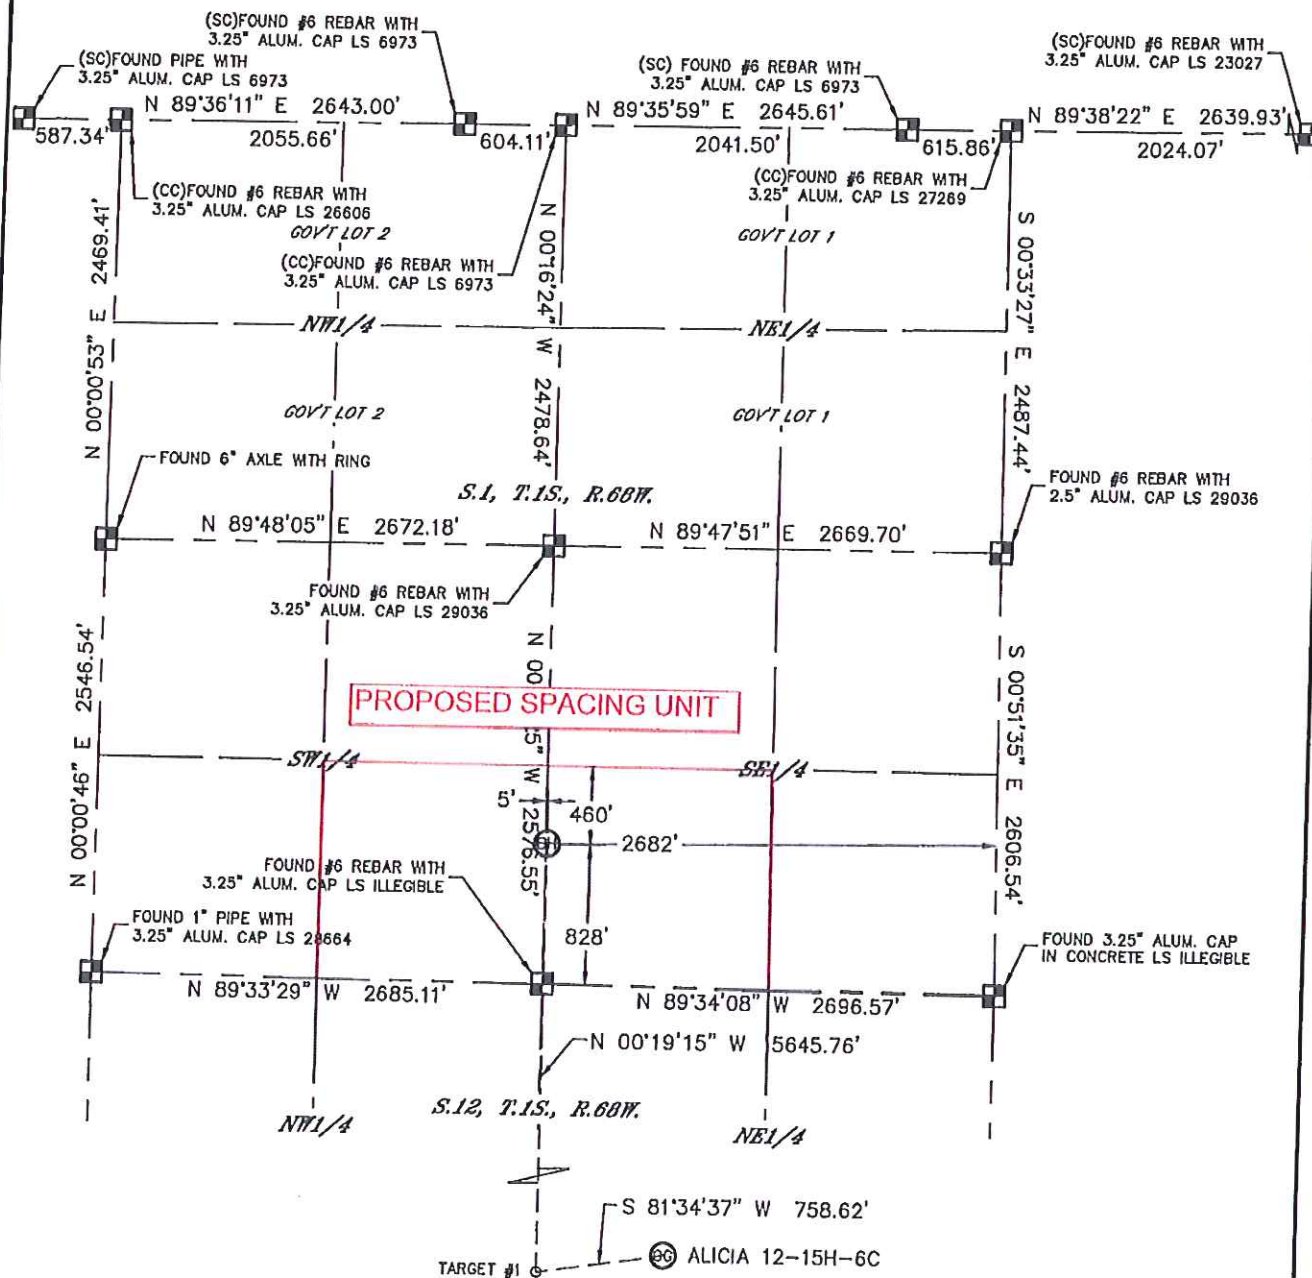 (SC)FOUND #6 REBAR WITH
3.25" ALUM. CAP LS 6973
(SC)FOUND PIPE WITH
3.25" ALUM. CAP LS 6973
(SC) FOUND #6 REBAR WITH
3.25" ALUM. CAP LS 6973
(SC)FOUND #6 REBAR WITH
3.25" ALUM. CAP LS 23027
N 89°36'11" E 2643.00'
N 89°35'59" E 2645.61'
N 89°38'22" E 2639.93'
587.34'
2055.66'
604.11'
2041.50'
615.86'
2024.07'
(CC)FOUND #6 REBAR WITH
3.25" ALUM. CAP LS 26606
(CC)FOUND #6 REBAR WITH
3.25" ALUM. CAP LS 27269
GOV'T LOT 2
GOV'T LOT 1
(CC)FOUND #6 REBAR WITH
3.25" ALUM. CAP LS 6973
N 00°00'53" E 2469.41'
N 00°16'24" W 2478.64'
S 00°33'27" E 2487.44'
NW1/4
NE1/4
GOV'T LOT 2
GOV'T LOT 1
FOUND 6" AXLE WITH RING
S.1, T.1S., R.68W.
FOUND #6 REBAR WITH
2.5" ALUM. CAP LS 29036
N 89°48'05" E 2672.18'
N 89°47'51" E 2669.70'
FOUND #6 REBAR WITH
3.25" ALUM. CAP LS 29036
N 00°00'46" E 2546.54'
N 00 5" W 2576.55'
S 00°51'35" E 2606.54'
PROPOSED SPACING UNIT
SW1/4
SE1/4
5'
460'
2682'
FOUND #6 REBAR WITH
3.25" ALUM. CAP LS ILLEGIBLE
828'
FOUND 1" PIPE WITH
3.25" ALUM. CAP LS 28664
FOUND 3.25" ALUM. CAP
IN CONCRETE LS ILLEGIBLE
N 89°33'29" W 2685.11'
N 89°34'08" W 2696.57'
N 00°19'15" W 5645.76'
S.12, T.1S., R.68W.
NW1/4
NE1/4
S 81°34'37" W 758.62'
ALICIA 12-15H-6C
TARGET #1